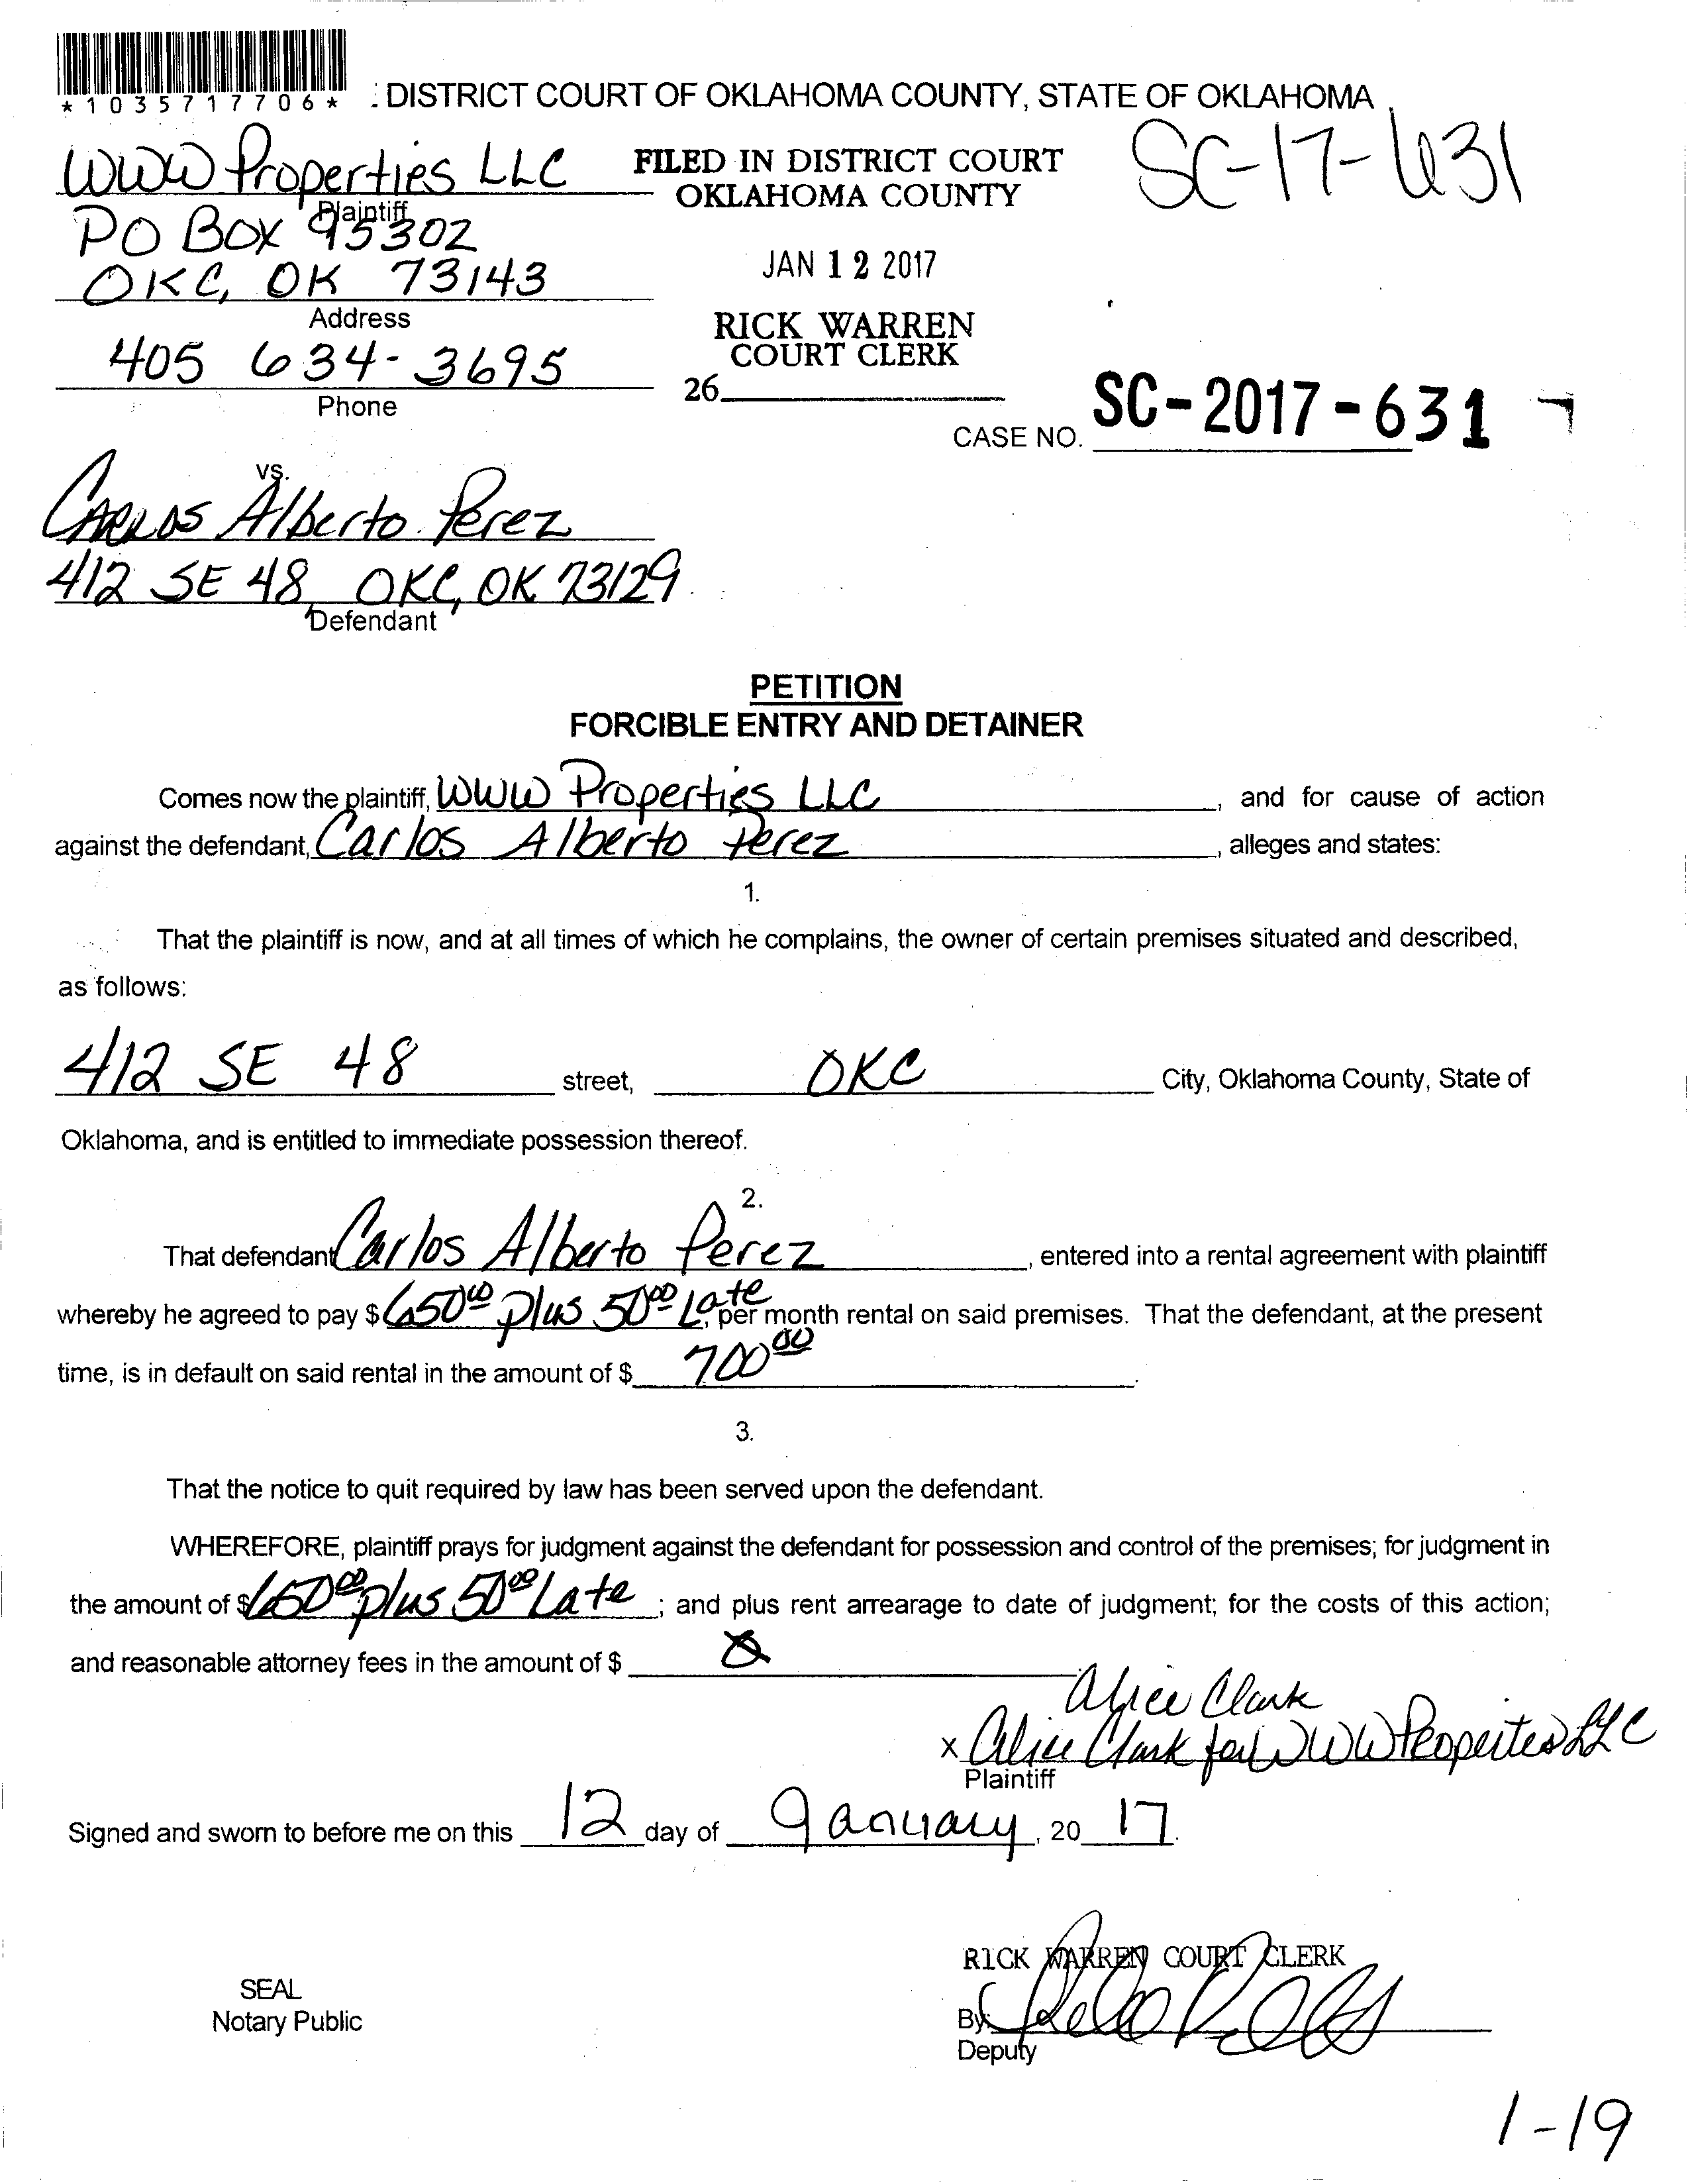 *1035717706*
: DISTRICT COURT OF OKLAHOMA COUNTY, STATE OF OKLAHOMA
WWW Properties LLC
Plaintiff
PO Box 95302
OKC, OK 73143
Address
405 634-3695
Phone
FILED IN DISTRICT COURT
OKLAHOMA COUNTY
JAN 12 2017
RICK WARREN
COURT CLERK
26
SC-17-631
CASE NO. SC-2017-631
vs.
Carlos Alberto Perez
412 SE 48, OKC, OK 73129
Defendant
PETITION
FORCIBLE ENTRY AND DETAINER
Comes now the plaintiff, WWW Properties LLC, and for cause of action
against the defendant, Carlos Alberto Perez, alleges and states:
1.
That the plaintiff is now, and at all times of which he complains, the owner of certain premises situated and described,
as follows:
412 SE 48 street, OKC City, Oklahoma County, State of
Oklahoma, and is entitled to immediate possession thereof.
2.
That defendant Carlos Alberto Perez, entered into a rental agreement with plaintiff
whereby he agreed to pay $ 650 00 plus 50 00 Late, per month rental on said premises. That the defendant, at the present
time, is in default on said rental in the amount of $ 700 00.
3.
That the notice to quit required by law has been served upon the defendant.
WHEREFORE, plaintiff prays for judgment against the defendant for possession and control of the premises; for judgment in
the amount of $ 650 00 plus 50 00 Late; and plus rent arrearage to date of judgment; for the costs of this action;
and reasonable attorney fees in the amount of $ Ø
Alice Clark
x Alice Clark for WWW Properites LLC
Plaintiff
Signed and sworn to before me on this 12 day of January, 20 17.
RICK WARREN COURT CLERK
SEAL
Notary Public
By:
Deputy
1-19